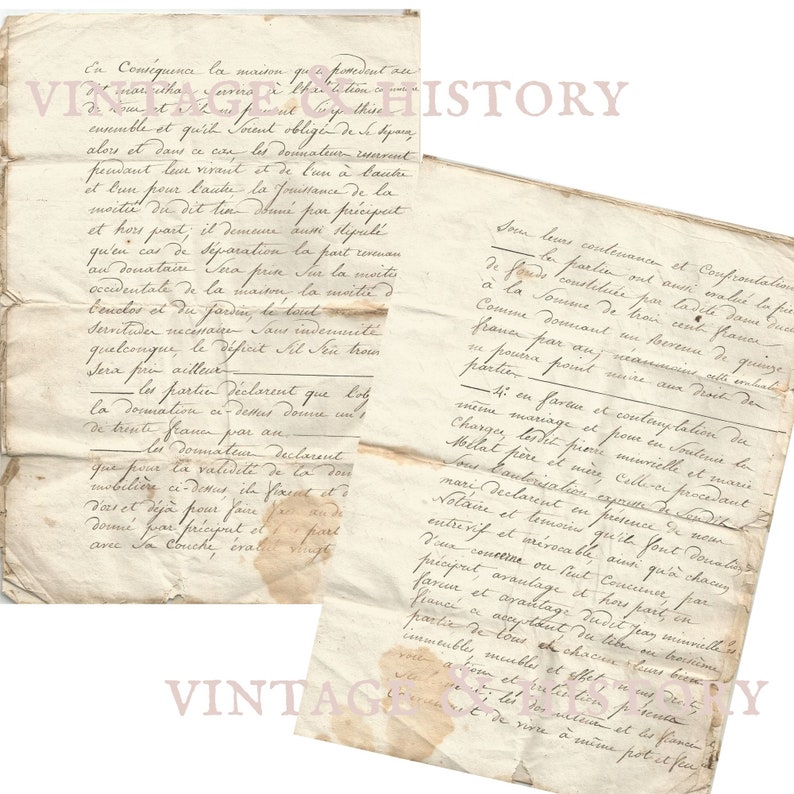 VINTAGE & HISTORY
En Conséquence la maison qu'ils possedent au
dit servira à l'habitation commune
de tous et s'ils ne peuvent
ensemble et qu'ils soient obligés de se séparer,
alors et dans ce cas, les donnateurs reservent
pendant leur vivant et de l'un à l'autre
et l'un pour l'autre la Jouissance de la
moitié du dit tier donné par préciput
et hors part; il demeure aussi stipulé
qu'en cas de séparation la part revenan
au donataire Sera prise Sur la moitié
occidentale de la maison la moitié d
l'enclos et du Jardin, le tout
servitudes necessaire Sans indemnité
quelconque, le déficit S'il S'en trouv
Sera pris ailleur
les parties déclarent que l'obj
la donnation ci-dessus donne un
de trente francs par an.
les donnateurs déclarent
que pour la validité de la donn
mobilière ci-dessus, ils fixent et
d'ors et déjà pour faire au
donné par préciput et part
avec Sa Couche, évalué vingt
Sous leurs contenance et Confrontation
les parties ont aussi évalué la
de fonds constituée par ladite dame
à la Somme de trois cent francs
Comme donnant un Revenu de quinze
francs par an; neanmoins cette evaluati
ne pourra point nuire aux droits des
parties
4.° en faveur et contemplation du
même mariage et pour en soutenir les
Charges, lesdits pierre minvielle et marie
Melat père et mère, Celle-ci procedant
Sous l'autorisation expresse de Sondit
mari declarent en présence de nous
Notaire et temoins qu'ils font donation
entrevif et irrévocable, ainsi qu'à chacun
d'eux concerne ou peut Concerner, par
préciput, avantage et hors part, en
faveur et avantage dudit Jean minvielle
fiancé ci acceptant du tiers ou troisième
partie de tous et chacuns leurs biens
immeubles meubles et effets, noms, droits,
voix, actions et présents
les donnateurs et les fiancés
de vivre à même pot et feu
VINTAGE & HISTORY